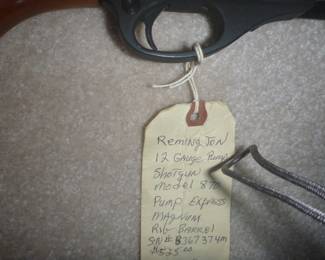 Remington
12 Gauge Pump
Shotgun
Model 870
Pump Express
Magnum
Rib Barrel
S/N# B367374M
$525.00